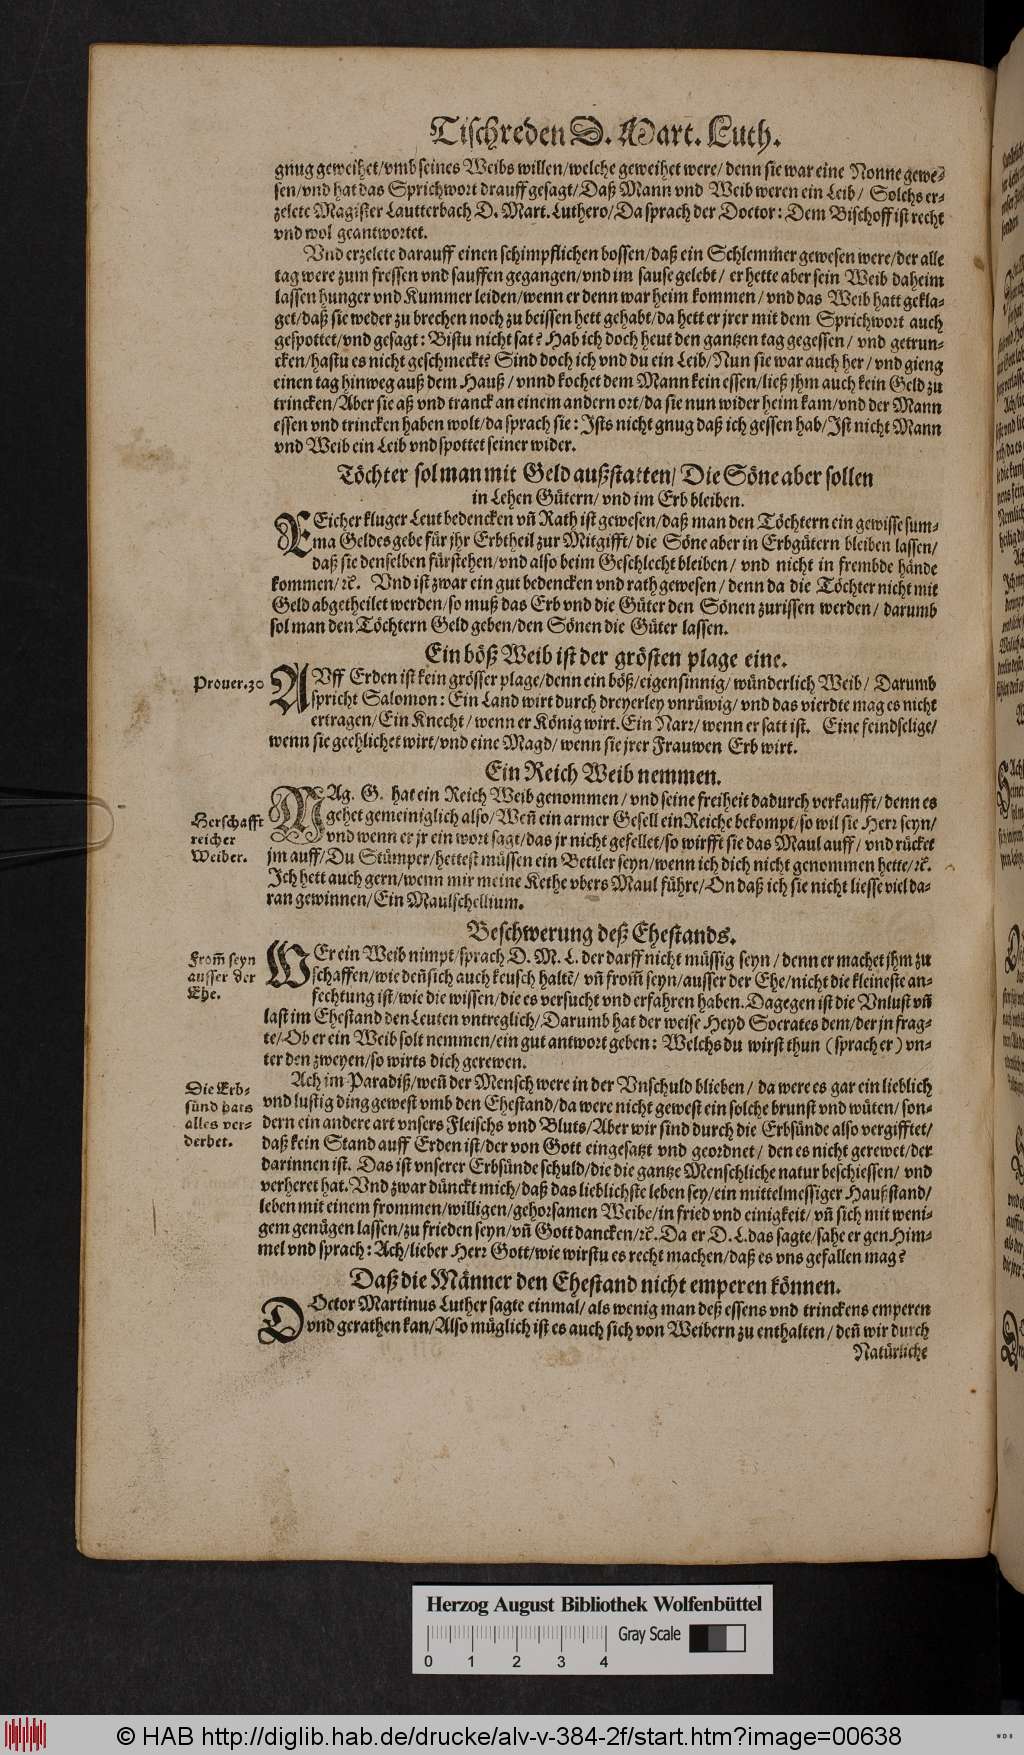 Tischreden D. Mart. Luth.
gnug geweihet/vmb seines Weibs willen/welche geweihet were/ denn sie war eine Nonne gewe-
sen/vnd hat das Sprichwort drauff gesagt/Daß Mann vnd Weib weren ein Leib/ Solchs er-
zelete Magister Lautterbach D. Mart. Luthero/Da sprach der Doctor: Dem Bischoff ist recht
vnd wol geantwortet.
Vnd erzelete darauff einen schimpflichen bossen/daß ein Schlemmer gewesen were/der alle
tag were zum fressen vnd sauffen gegangen/vnd im sause gelebt/ er hette aber sein Weib daheim
lassen hunger vnd Kummer leiden/wenn er denn war heim kommen/ vnd das Weib hatt gekla-
get/daß sie weder zu brechen noch zu beissen hett gehabt/da hett er jrer mit dem Sprichwort auch
gespottet/vnd gesagt: Bistu nicht sat? Hab ich doch heut den gantzen tag gegessen/ vnd getrun-
cken/hastu es nicht geschmeckt? Sind doch ich vnd du ein Leib/Nun sie war auch her/ vnd gieng
einen tag hinweg auß dem Hauß/ vnnd kochet dem Mann kein essen/ließ jhm auch kein Geld zu
trincken/Aber sie aß vnd tranck an einem andern ort/da sie nun wider heim kam/vnd der Mann
essen vnd trincken haben wolt/da sprach sie: Ists nicht gnug daß ich gessen hab/Ist nicht Mann
vnd Weib ein Leib vnd spottet seiner wider.
Töchter sol man mit Geld außstatten/ Die Söne aber sollen
in Lehen Gütern/ vnd im Erb bleiben.
EEicher kluger Leut bedencken vñ Rath ist gewesen/daß man den Töchtern ein gewisse sum-
ma Geldes gebe für jhr Erbtheil zur Mitgifft/ die Söne aber in Erbgütern bleiben lassen/
daß sie denselben fürstehen/vnd also beim Geschlecht bleiben/ vnd nicht in frembde hände
kommen/ꝛc. Vnd ist zwar ein gut bedencken vnd rath gewesen/ denn da die Töchter nicht mit
Geld abgetheilet werden/so muß das Erb vnd die Güter den Sönen zurissen werden/ darumb
sol man den Töchtern Geld geben/den Sönen die Güter lassen.
Ein böß Weib ist der grösten plage eine.
Prouer.30
AVff Erden ist kein grösser plage/denn ein böß/eigensinnig/ wünderlich Weib/ Darumb
spricht Salomon: Ein Land wirt durch dreyerley vnrüwig/ vnd das vierdte mag es nicht
ertragen/Ein Knecht/ wenn er König wirt. Ein Narr/ wenn er satt ist. Eine feindselige/
wenn sie geehlichet wirt/vnd eine Magd/ wenn sie jrer Frauwen Erb wirt.
Ein Reich Weib nemmen.
Herschafft
reicher
Weiber.
MAg. G. hat ein Reich Weib genommen/ vnd seine freiheit dadurch verkaufft/ denn es
gehet gemeiniglich also/ Weñ ein armer Gesell ein Reiche bekompt/so wil sie Herr seyn/
vnd wenn er jr ein wort sagt/das jr nicht gefellet/so wirfft sie das Maul auff/ vnd rücket
jm auff/Du Stümper/hettest müssen ein Bettler seyn/wenn ich dich nicht genommen hette/ꝛc.
Ich hett auch gern/wenn mir meine Kethe vbers Maul führe/On daß ich sie nicht liesse viel da-
ran gewinnen/Ein Maulschellium.
Beschwerung deß Ehestands.
From̃ seyn
ausser der
Ehe.
WEr ein Weib nimpt/sprach D. M. L. der darff nicht müssig seyn/ denn er machet jhm zu
schaffen/wie deñ sich auch keusch haltẽ/ vñ from̃ seyn/ausser der Ehe/nicht die kleineste an-
fechtung ist/wie die wissen/die es versucht vnd erfahren haben. Dagegen ist die Vnlust vñ
last im Ehestand den Leuten vntreglich/Darumb hat der weise Heyd Socrates dem/der jn frag-
te/Ob er ein Weib solt nemmen/ein gut antwort geben: Welchs du wirst thun (sprach er) vn-
ter den zweyen/so wirts dich gerewen.
Die Erb-
sünd hats
alles ver-
derbet.
Ach im Paradiß/weñ der Mensch were in der Vnschuld blieben/ da were es gar ein lieblich
vnd lustig ding gewest vmb den Ehestand/da were nicht gewest ein solche brunst vnd wüten/ son-
dern ein andere art vnsers Fleischs vnd Bluts/Aber wir sind durch die Erbsünde also vergifftet/
daß kein Stand auff Erden ist/der von Gott eingesatzt vnd geordnet/ den es nicht gerewet/der
darinnen ist. Das ist vnserer Erbsünde schuld/die die gantze Menschliche natur beschiessen/ vnd
verheret hat. Vnd zwar dünckt mich/daß das lieblichste leben sey/ein mittelmessiger Haußstand/
leben mit einem frommen/willigen/gehorsamen Weibe/in fried vnd einigkeit/ vñ sich mit weni-
gem genügen lassen/zu frieden seyn/vñ Gott dancken/ꝛc. Da er D. L. das sagte/sahe er gen Him-
mel vnd sprach: Ach/lieber Herr Gott/wie wirstu es recht machen/daß es vns gefallen mag?
Daß die Männer den Ehestand nicht emperen können.
DOctor Martinus Luther sagte einmal/ als wenig man deß essens vnd trinckens emperen
vnd gerathen kan/Also müglich ist es auch sich von Weibern zu enthalten/ deñ wir durch
Natürliche
Herzog August Bibliothek Wolfenbüttel
Gray Scale
0 1 2 3 4
© HAB http://diglib.hab.de/drucke/alv-v-384-2f/start.htm?image=00638